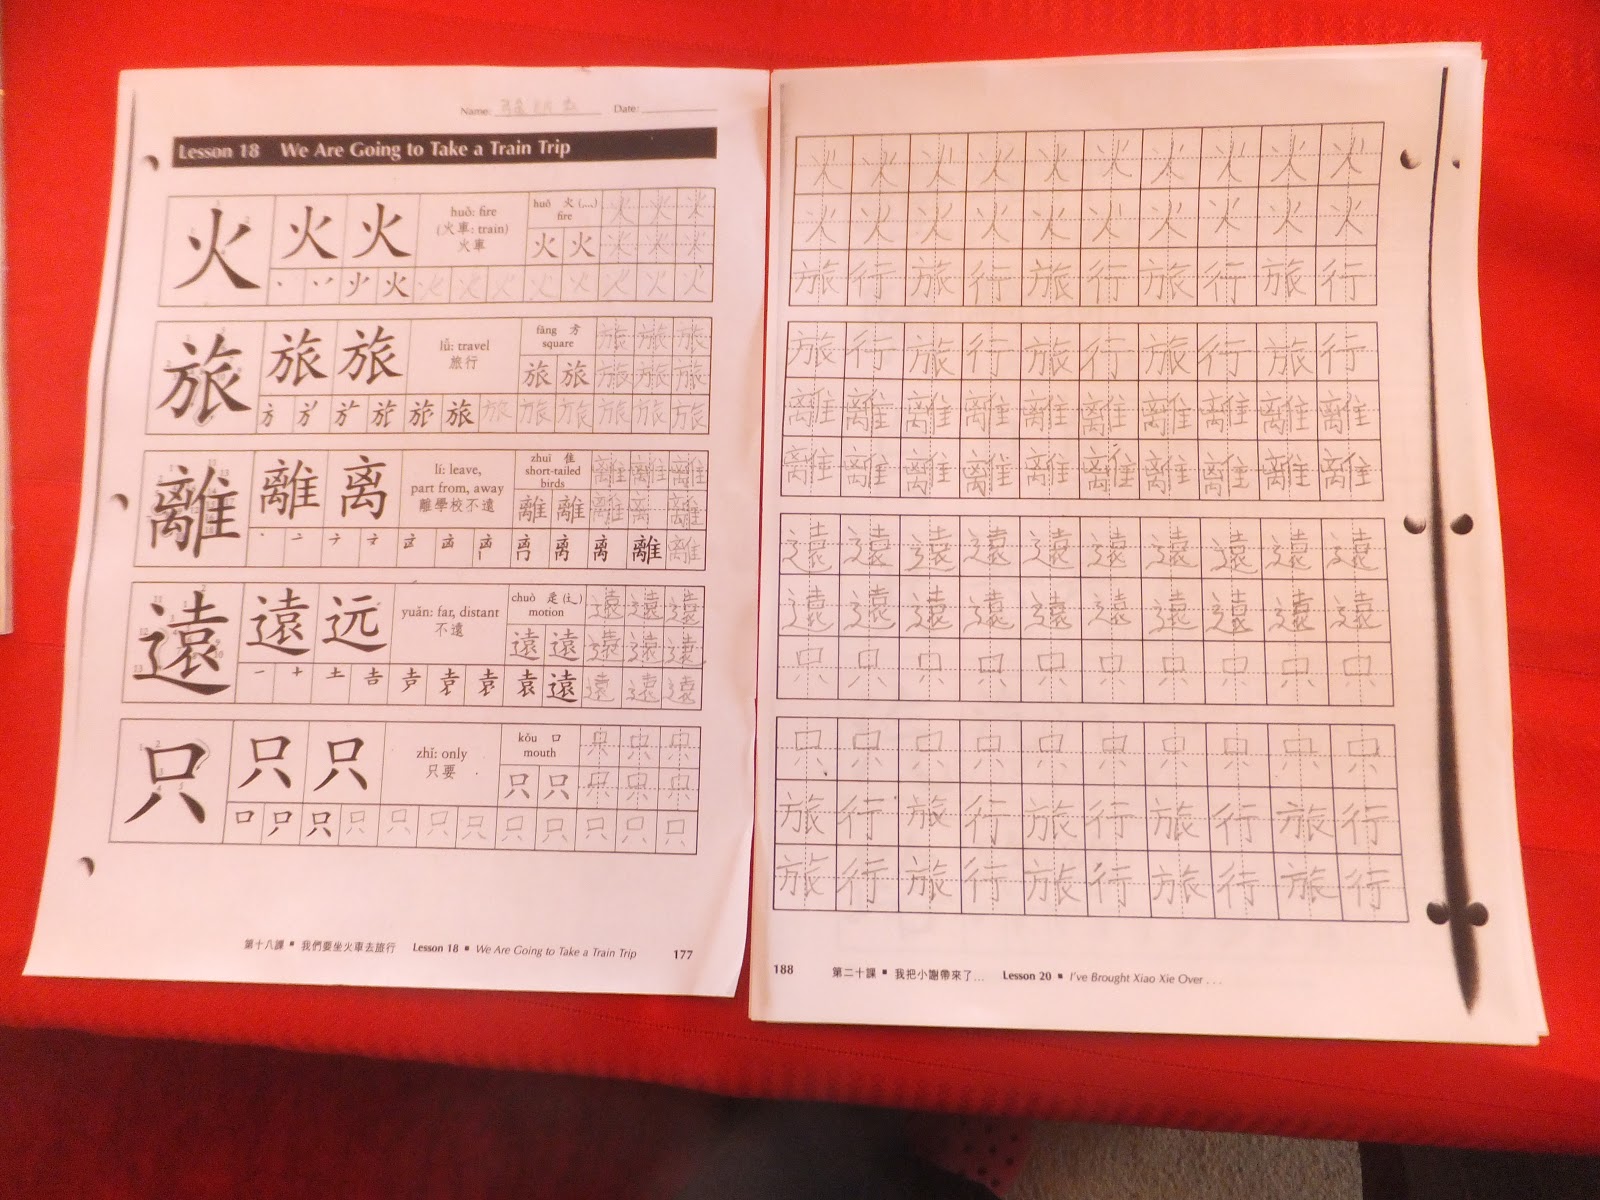 Name: Date:
Lesson 18 We Are Going to Take a Train Trip
火 火 火
huǒ: fire
(火車: train)
火車
huǒ 火 (灬)
fire
火 火
火 火 火
火 火 火
丶 丷 火 火 火 火 火 火 火 火 火 火
旅 旅 旅
lǚ: travel
旅行
fāng 方
square
旅 旅
旅 旅 旅
旅 旅 旅
方 旅 旅 旅 旅 旅 旅 旅
離 離 离
lí: leave,
part from, away
離學校不遠
zhuī 隹
short-tailed
birds
離 離
離 離 離
離 离 離
丶 亠 离 离 離 離
遠 遠 远
yuǎn: far, distant
不遠
chuò 辵 (辶)
motion
遠 遠
遠 遠 遠
遠 遠 遠
一 十 土 吉 袁 袁 遠 遠 遠 遠
只 只 只
zhǐ: only
只要
kǒu 口
mouth
只 只
只 只 只
只 只 只
口 只 只 只 只 只 只 只 只 只 只 只
第十八課 ▪ 我們要坐火車去旅行 Lesson 18 ▪ We Are Going to Take a Train Trip 177
火 火 火 火 火 火 火 火 火 火
火 火 火 火 火 火 火 火 火 火
旅 行 旅 行 旅 行 旅 行 旅 行
旅 行 旅 行 旅 行 旅 行 旅 行
離 離 離 離 離 離 離 離 離 離
離 離 離 離 離 離 離 離 離 離
遠 遠 遠 遠 遠 遠 遠 遠 遠 遠
遠 遠 遠 遠 遠 遠 遠 遠 遠 遠
只 只 只 只 只 只 只 只 只 只
只 只 只 只 只 只 只 只 只 只
旅 行 旅 行 旅 行 旅 行 旅 行
旅 行 旅 行 旅 行 旅 行 旅 行
188 第二十課 ▪ 我把小謝帶來了… Lesson 20 ▪ I've Brought Xiao Xie Over . . .